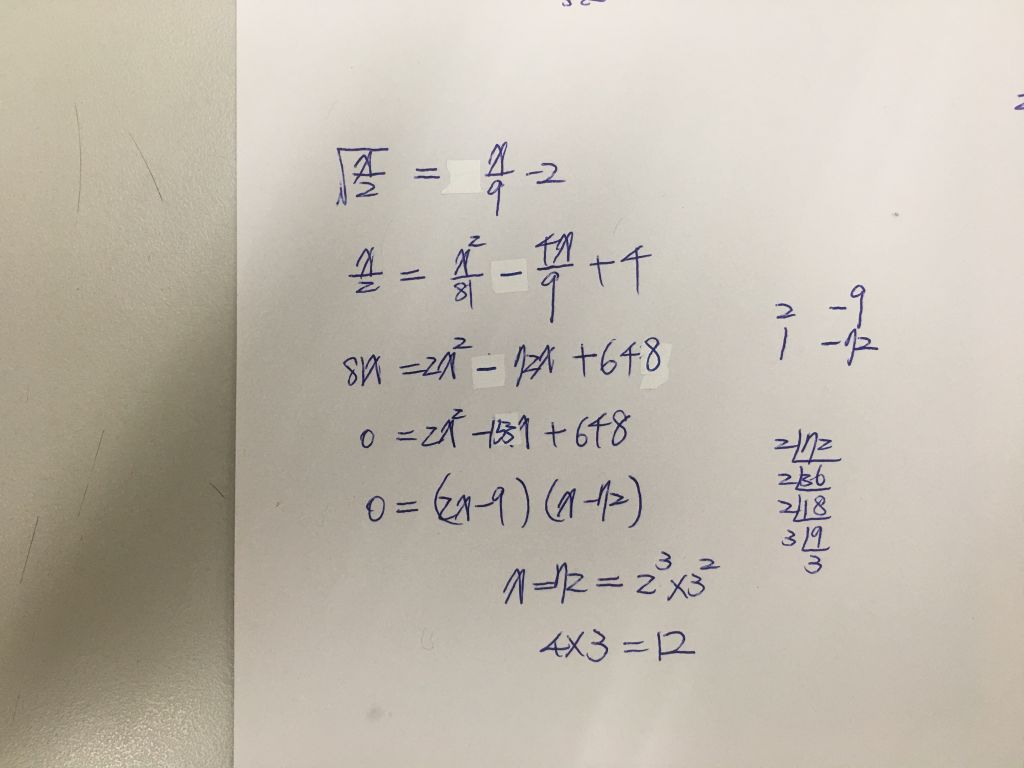 √(x/2) = x/9 - 2
x/2 = x²/81 - 4x/9 + 4
81x = 2x² - 72x + 648
0 = 2x² - 153x + 648
0 = (2x - 9)(x - 72)
x = 72 = 2³ × 3²
4×3 = 12
2 -9
1 -72
2|72
2|36
2|18
3|9
3